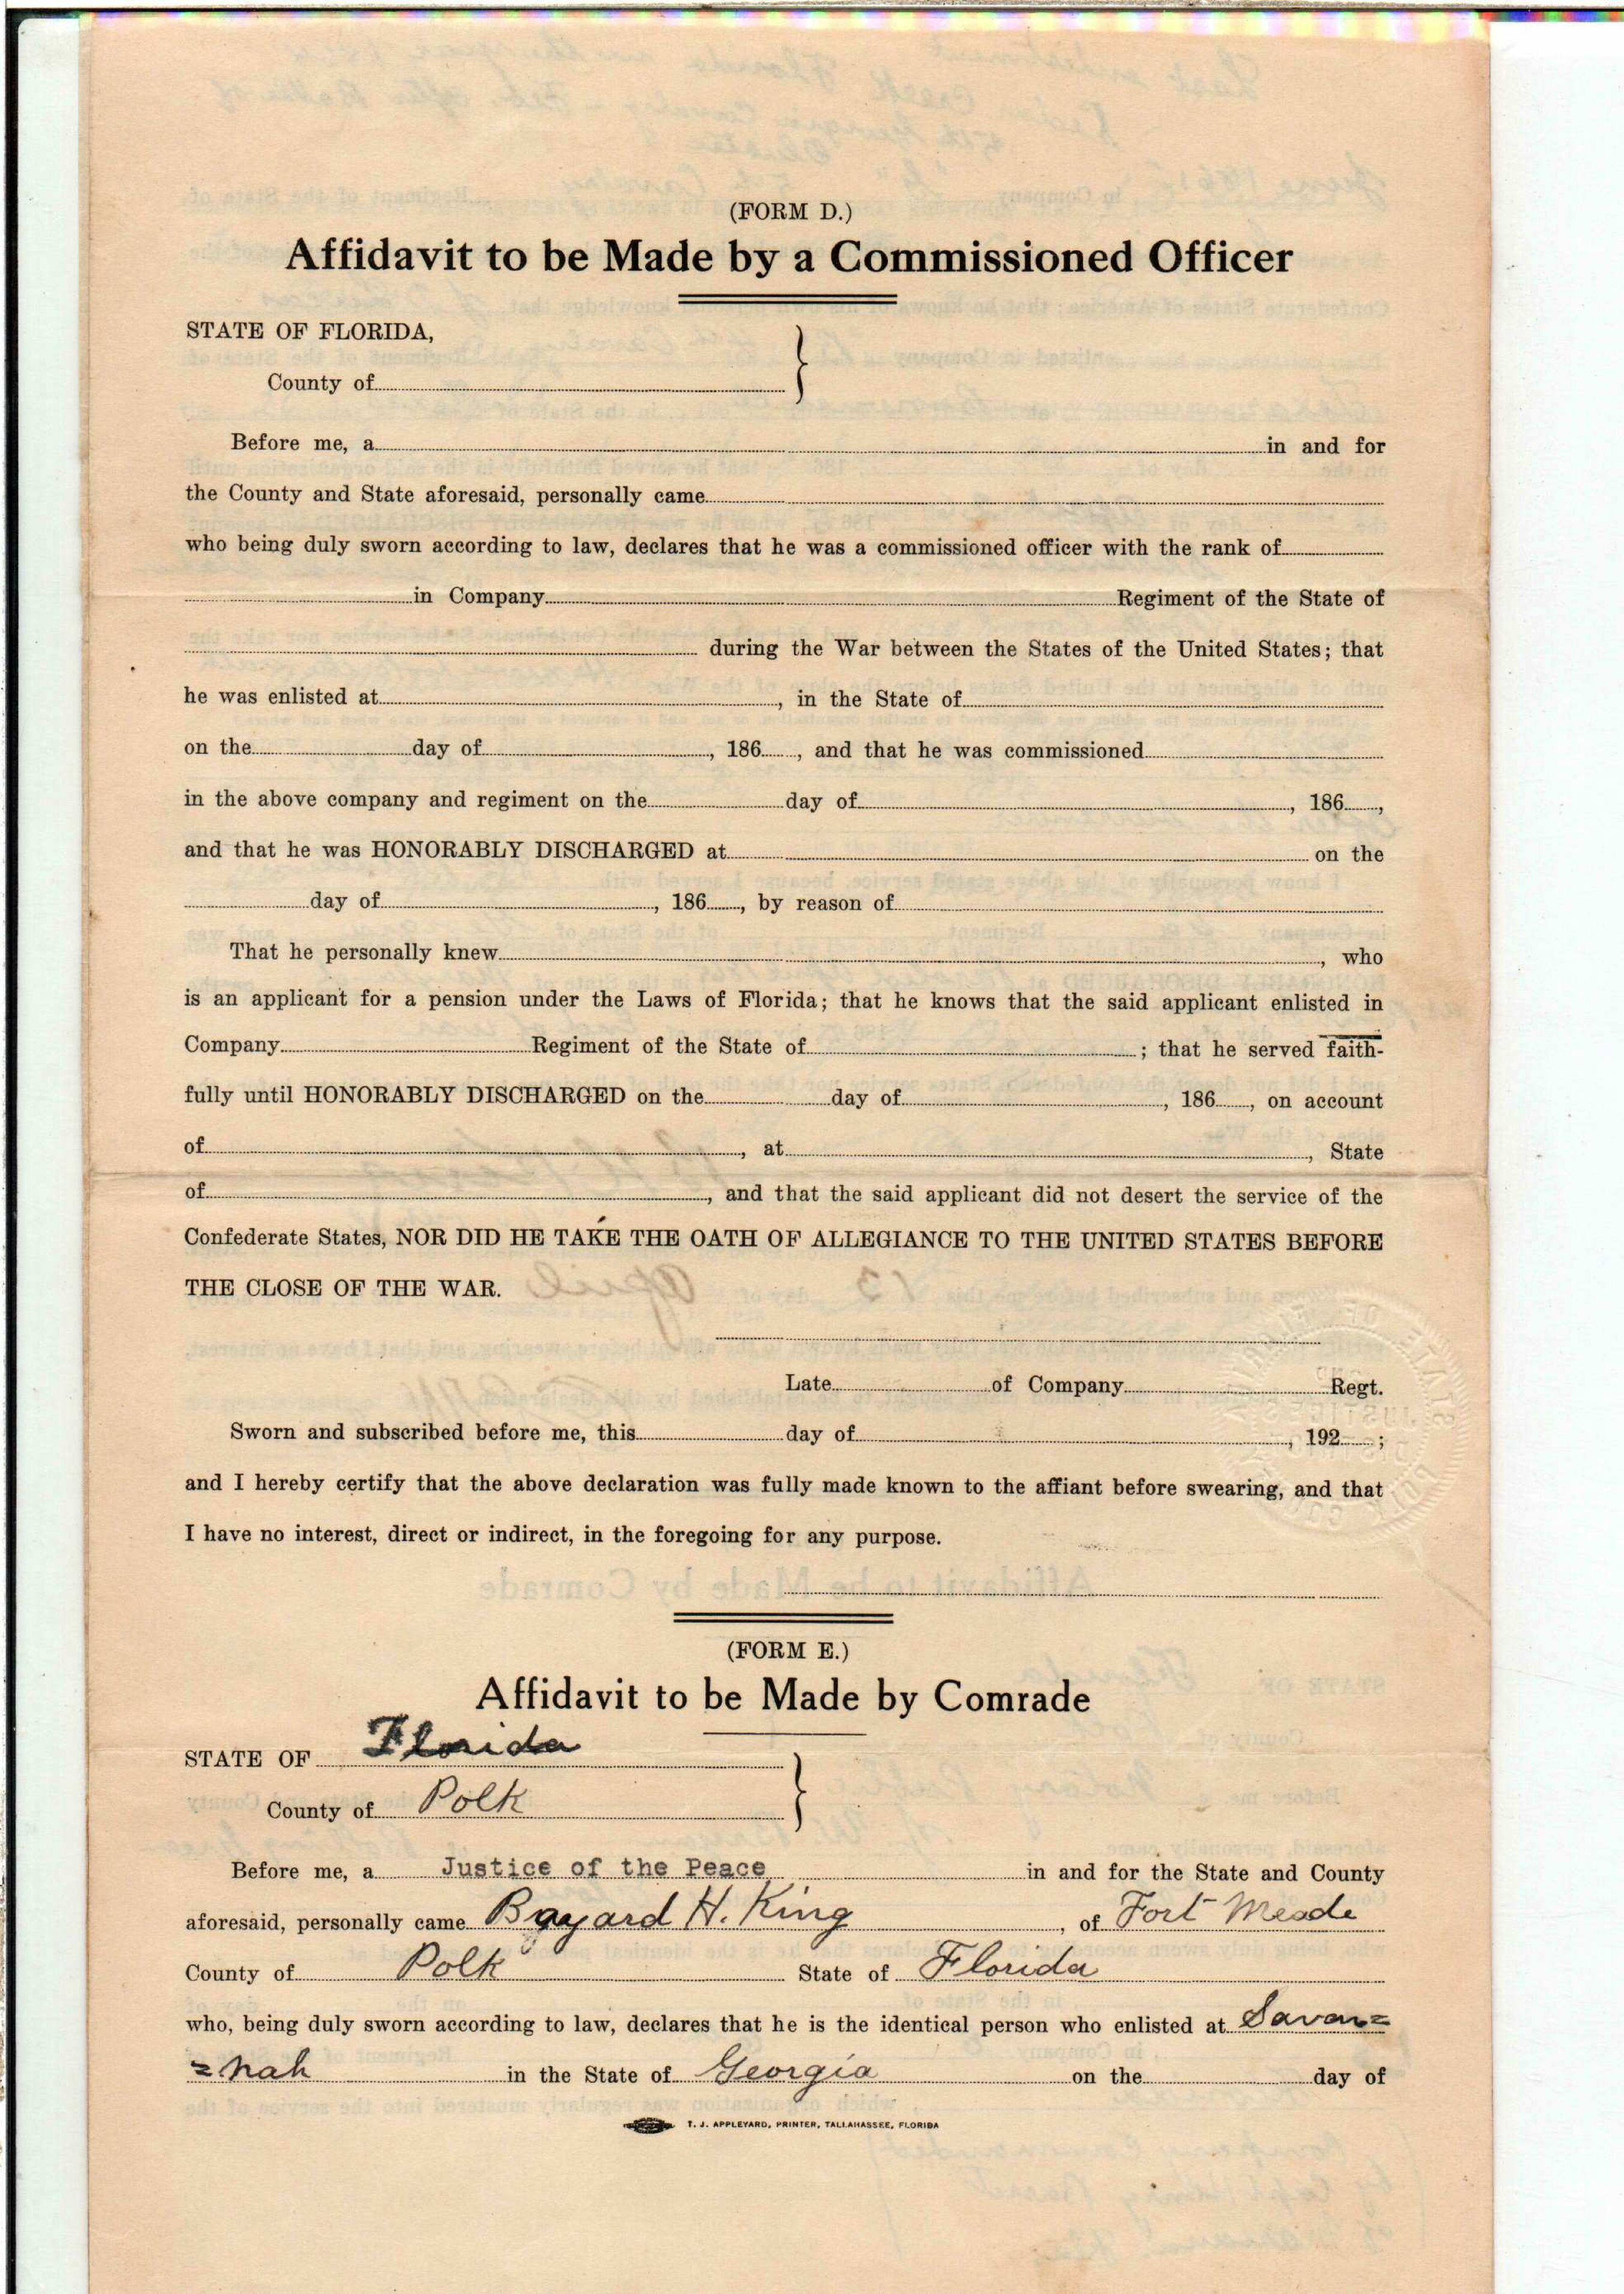 (FORM D.)
Affidavit to be Made by a Commissioned Officer
STATE OF FLORIDA,
County of
Before me, a in and for
the County and State aforesaid, personally came
who being duly sworn according to law, declares that he was a commissioned officer with the rank of
in Company Regiment of the State of
during the War between the States of the United States; that
he was enlisted at , in the State of
on the day of , 186 , and that he was commissioned
in the above company and regiment on the day of , 186 ,
and that he was HONORABLY DISCHARGED at on the
day of , 186 , by reason of
That he personally knew , who
is an applicant for a pension under the Laws of Florida; that he knows that the said applicant enlisted in
Company Regiment of the State of ; that he served faith-
fully until HONORABLY DISCHARGED on the day of , 186 , on account
of , at , State
of , and that the said applicant did not desert the service of the
Confederate States, NOR DID HE TAKE THE OATH OF ALLEGIANCE TO THE UNITED STATES BEFORE
THE CLOSE OF THE WAR.
Late of Company Regt.
Sworn and subscribed before me, this day of , 192 ;
and I hereby certify that the above declaration was fully made known to the affiant before swearing, and that
I have no interest, direct or indirect, in the foregoing for any purpose.
(FORM E.)
Affidavit to be Made by Comrade
STATE OF Florida
County of Polk
Before me, a Justice of the Peace in and for the State and County
aforesaid, personally came Bayard H. King , of Fort Meade
County of Polk State of Florida
who, being duly sworn according to law, declares that he is the identical person who enlisted at Savan=
=nah in the State of Georgia on the day of
T. J. APPLEYARD, PRINTER, TALLAHASSEE, FLORIDA